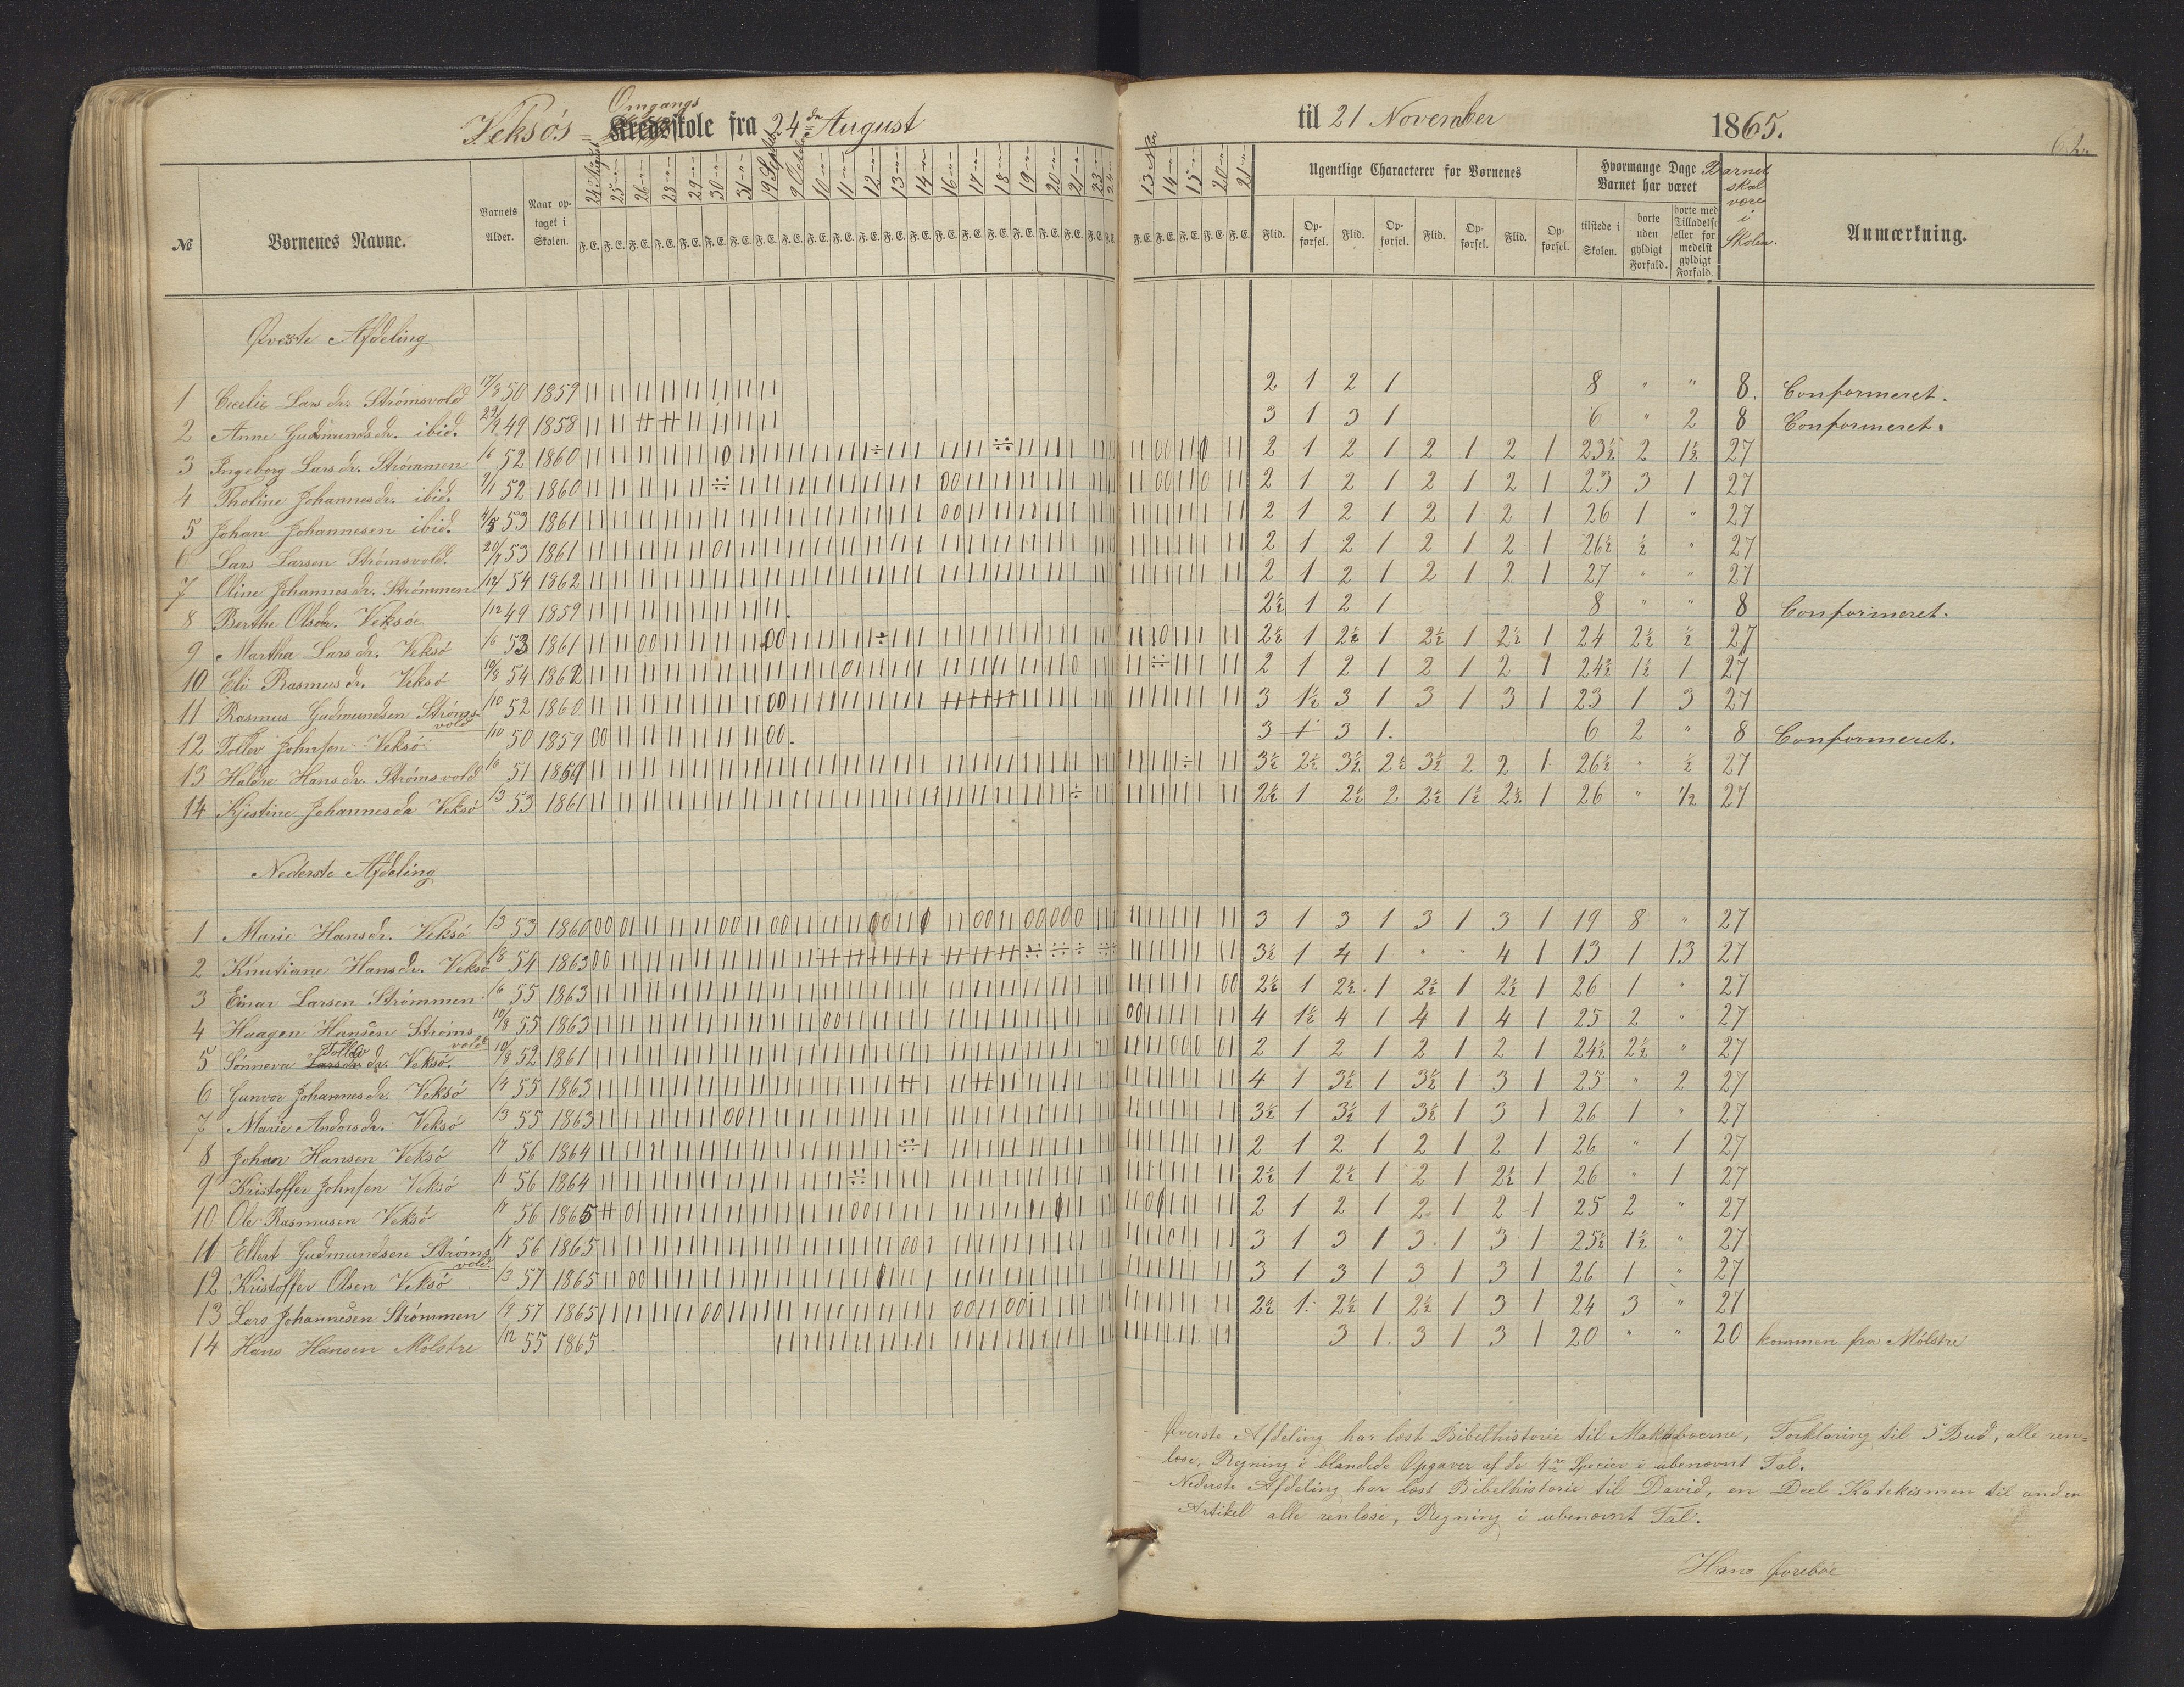 Veksøs = Omgangsskole fra 24de August til 21 November 1865.
№ Børnenes Navne. Barnets Alder. Naar optaget i Skolen. Ugentlige Characterer for Børnenes Hvormange Dage Barnet har været Barnet skal være i Skolen. Anmærkning.
24 August 25 26 28 29 30 31 19 Septbr 9 Octbr 10 11 12 13 14 16 17 18 19 20 21 23 24 13 Nbr 14 15 20 21
F. E. Flid. Opførsel. Flid. Opførsel. Flid. Opførsel. Flid. Opførsel. tilstede i Skolen. borte uden gyldigt Forfald. borte med Tilladelse eller formedelst gyldigt Forfald.
Øverste Afdeling
1 Cecelie Larsdr. Strømsvold 17/8 50 1859 2 1 2 1 8 " " 8. Conformeret.
2 Anne Gudmundsdr. ibid. 49 1858 3 1 3 1 6 " 2 8 Conformeret.
3 Ingeborg Larsdr. Strømmen 1/6 52 1860 2 1 2 1 2 1 2 1 23½ 2 1½ 27
4 Tholine Johannesdr. ibid. 52 1860 2 1 2 1 2 1 2 1 23 3 1 27
5 Johan Johannesen ibid. 4/5 53 1861 2 1 2 1 2 1 2 1 26 1 " 27
6 Lars Larsen Strømsvold. 53 1861 2 1 2 1 2 1 2 1 26½ ½ " 27
7 Oline Johannesdr. Strømmen 54 1862 2 1 2 1 2 1 2 1 27 " " 27
8 Berthe Olsdr. Veksøe 1/12 49 1859 2½ 1 2 1 8 " " 8 Conformeret.
9 Martha Larsdr. Veksø 1/6 53 1861 2½ 1 2½ 1 2½ 1 2½ 1 24 2½ ½ 27
10 Eli Rasmusdr. Veksø 19/8 54 1862 2 1 2 1 2 1 2 1 24½ 1½ 1 27
11 Rasmus Gudmundsen Strømsvold 1/10 52 1860 3 1½ 3 1 3 1 3 1 23 1 3 27
12 Tollev Johnsen Veksø 1/10 50 1859 3 1 3 1. 6 2 " 8 Conformeret.
13 Haldne Hansdr. Strømsvold 1/6 51 1864 3½ 2½ 3½ 2½ 3½ 2 2 1 26½ " ½ 27
14 Kjistine Johannesdr Veksø 1/3 53 1861 2½ 1 2½ 2 2½ 1½ 2½ 1 26 " 1/2 27
Nederste Afdeling
1 Marie Hansdr. Veksø 1/3 53 1860 3 1 3 1 3 1 3 1 19 8 " 27
2 Knutiane Hansdr. Veksø 1/8 54 1863 3½ 1 4 1 " " 4 1 13 1 13 27
3 Einar Larsen Strømmen 1/6 55 1863 2½ 1 2½ 1 2½ 1 2½ 1 26 1 " 27
4 Haagen Hansen Strømsvold 10/8 55 1863 4 1½ 4 1 4 1 4 1 25 2 " 27
5 Sønneva Tollevdr. Veksø. 10/8 52 1861 2 1 2 1 2 1 2 1 24½ 2½ " 27
6 Gunvor Johannesdr. Veksø 1/4 55 1863 4 1 3½ 1 3½ 1 3 1 25 " 2 27
7 Marie Andersdr. Veksø 1/3 55 1863 3½ 1 3½ 1 3½ 1 3 1 26 1 " 27
8 Johan Hansen Veksø 1/7 56 1864 2 1 2 1 2 1 2 1 26 " 1 27
9 Kristoffer Johnsen Veksø 56 1864 2½ 1 2½ 1 2 1 2½ 1 26 " 1 27
10 Ole Rasmusen Veksø 56 1865 2 1 2 1 2 1 2 1 25 2 " 27
11 Ellert Gudmundsen Strømsvold. 1/7 56 1865 3 1 3 1 3 1 3 1 25½ 1½ " 27
12 Kristoffer Olsen Veksø 1/3 57 1865 3 1 3 1 3 1 3 1 26 1 " 27
13 Lars Johannesen Strømmen 1/9 57 1865 2½ 1 2½ 1 2½ 1 3 1 24 3 " 27
14 Hans Hansen Mølstre 1/12 55 1865 3 1 3 1 3 1 20 " " 20 kommen fra Mølstre
Øverste Afdeling har læst Bibelhistorie til Makabæerne, Forklaring til 5 Bud, alle ren-
læse, Regning i blandede Opgaver af de 4re Specier i ubenævnt Tal.
Nederste Afdeling har læst Bibelhistorie til David, en Deel Katekismen til anden
Artikel alle renlæse, Regning i ubenævnt Tal.
Hans